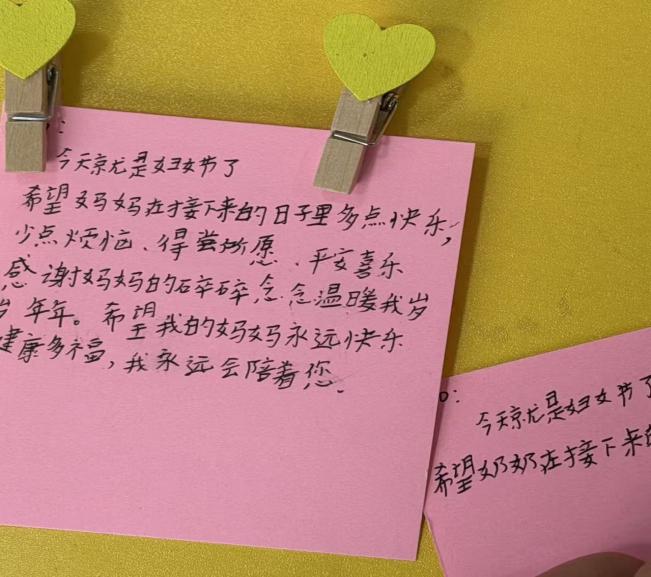 :
今天就是妇女节了
希望妈妈在接下来的日子里多点快乐,
少点烦恼、得尝所愿、平安喜乐
感谢妈妈的碎碎念念温暖我岁
岁年年。希望我的妈妈永远快乐
健康多福,我永远会陪着您.
o:
今天就是妇女节了
希望奶奶在接下来的